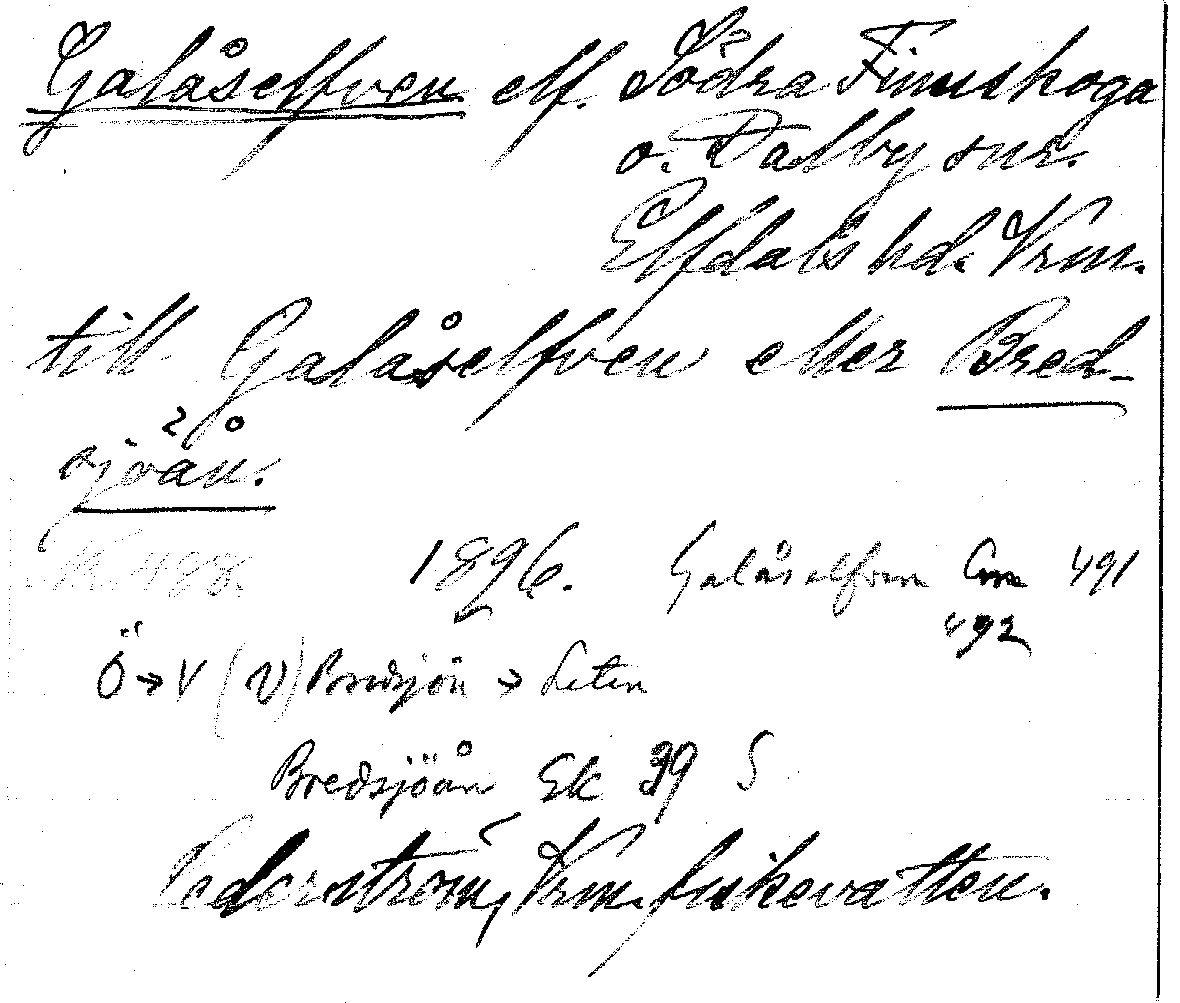 Galåselfven elf. Södra Finnskoga
o. Dalby snr.
Elfdals hd. Vrm.
till Galåselfven eller Bred-
sjöån.
1896. Galåselfven 491
492
Ö→V (V) Bredsjön → Leten
Bredsjöån Ek 39 S
Cederström, Vrm. fiskevatten.